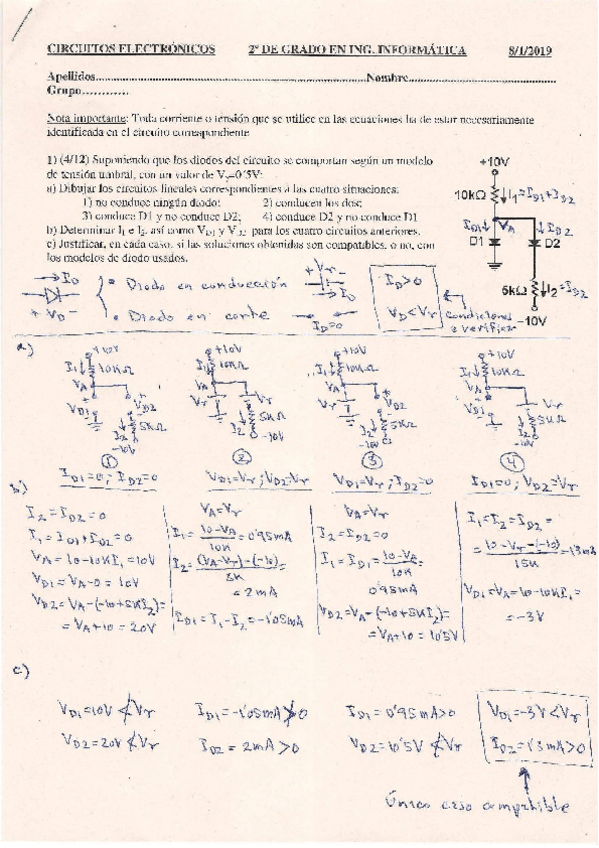 CIRCUITOS ELECTRÓNICOS 2º DE GRADO EN ING. INFORMÁTICA 8/1/2019
Apellidos..........Nombre..........
Grupo............
Nota importante: Toda corriente o tensión que se utilice en las ecuaciones ha de estar necesariamente
identificada en el circuito correspondiente
1) (4/12) Suponiendo que los diodos del circuito se comportan según un modelo
de tensión umbral, con un valor de Vγ=0'5V:
a) Dibujar los circuitos lineales correspondientes a las cuatro situaciones:
1) no conduce ningún diodo; 2) conducen los dos;
3) conduce D1 y no conduce D2; 4) conduce D2 y no conduce D1
b) Determinar I1 e I2, así como VD1 y VD2 para los cuatro circuitos anteriores.
c) Justificar, en cada caso, si las soluciones obtenidas son compatibles, o no, con
los modelos de diodo usados.
+10V
10kΩ I1=ID1+ID2
ID1 VA ID2
D1 D2
5kΩ I2=ID2
-10V
ID
+ VD -
Diodo en conducción
+ Vγ -
ID
Diodo en corte
ID=0
ID>0
VD<Vγ
Condiciones
a verificar
a)
+10V +10V +10V +10V
I1 10KΩ I1 10KΩ I1 10KΩ I1 10KΩ
VA VA VA VA
VD1 VD2 Vγ Vγ Vγ VD2 VD1 Vγ
I2 5KΩ I2 5KΩ I2 5KΩ I2 5KΩ
-10V -10V -10V -10V
1 2 3 4
ID1=0; ID2=0 VD1=Vγ; VD2=Vγ VD1=Vγ; ID2=0 ID1=0; VD2=Vγ
b)
I2=ID2=0
I1=ID1+ID2=0
VA=10-10KI1=10V
VD1=VA-0=10V
VD2=VA-(-10+5KI2)=
=VA+10=20V
VA=Vγ
I1=10-VA/10K=0'95mA
I2=(VA-Vγ)-(-10)/5K=
=2mA
ID1=I1-I2=-1'05mA
VA=Vγ
I2=ID2=0
I1=ID1=10-VA/10K=
0'95mA
VD2=VA-(-10+5KI2)=
=VA+10=10'5V
I1=I2=ID2=
=10-Vγ-(-10)/15K=1'3mA
VD1=VA=10-10KI1=
=-3V
c)
VD1=10V ≮ Vγ
VD2=20V ≮ Vγ
ID1=-1'05mA ≯ 0
ID2=2mA>0
ID1=0'95mA>0
VD2=10'5V ≮ Vγ
VD1=-3V<Vγ
ID2=1'3mA>0
Único caso compatible